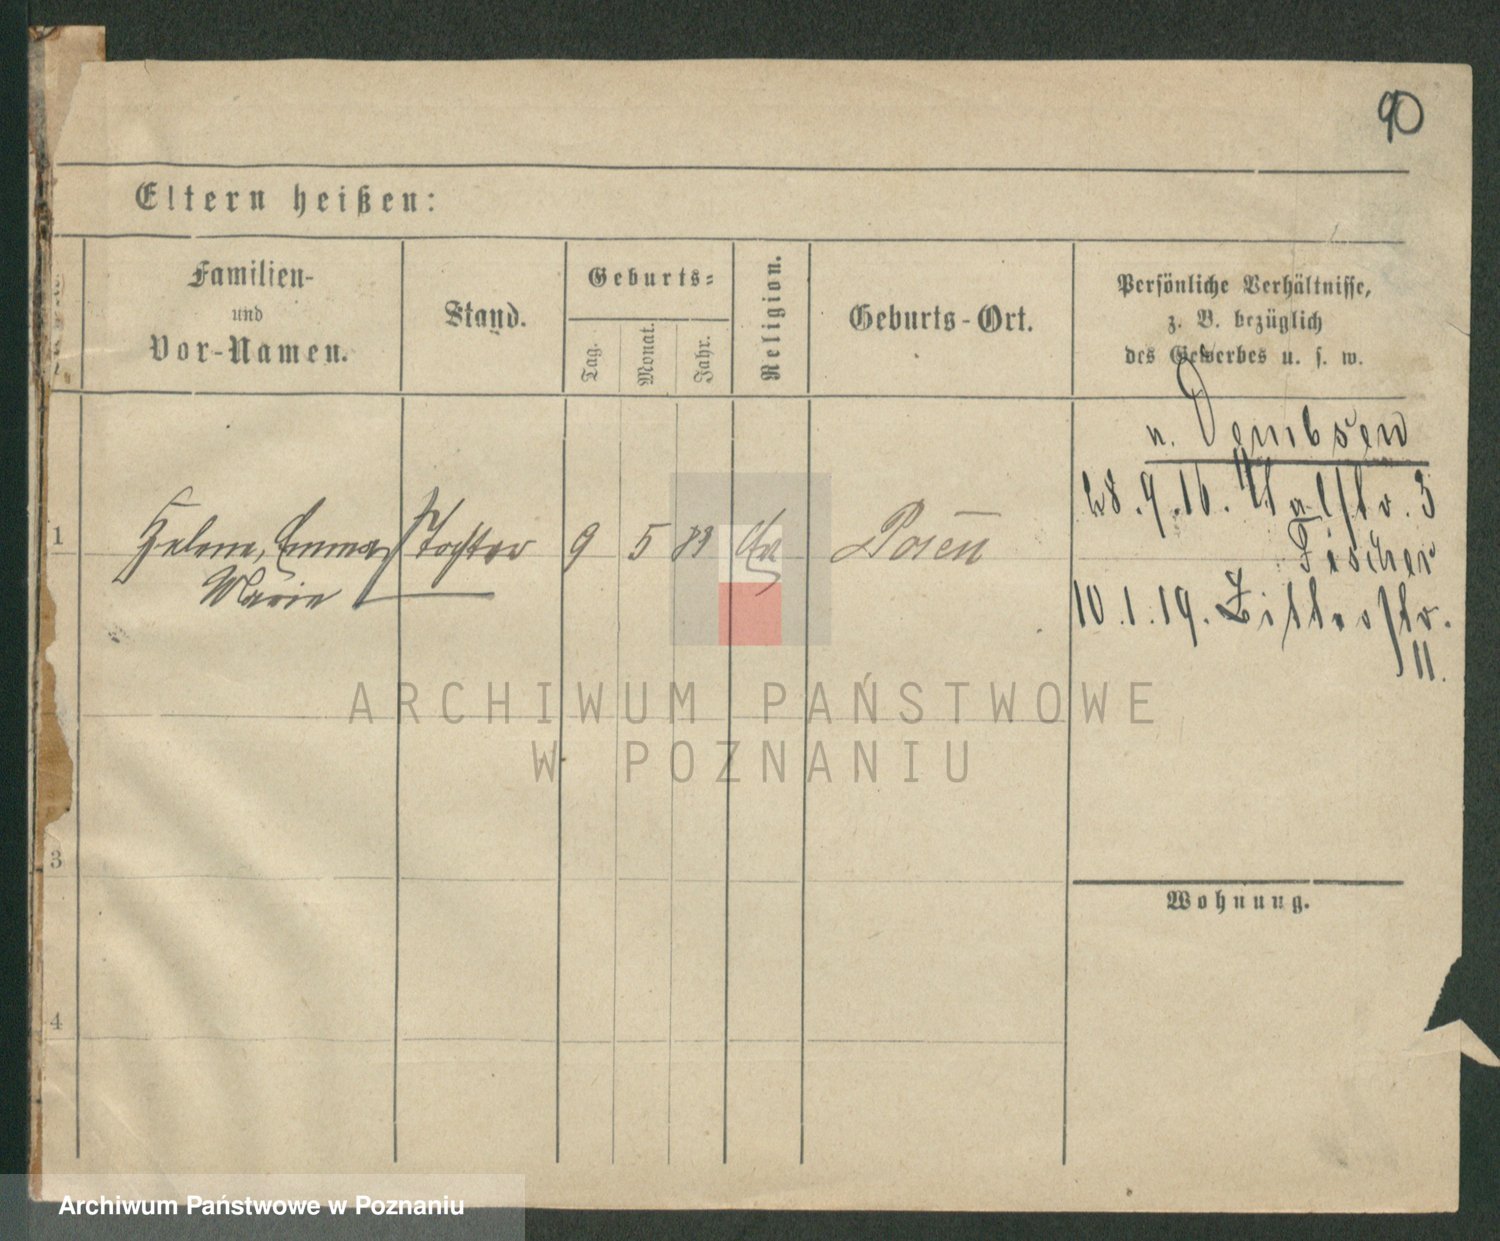 90
Eltern heißen:
Familien-
und
Vor-Namen.
Stand.
Geburts-
Tag.
Monat.
Jahr.
Religion.
Geburts-Ort.
Persönliche Verhältnisse,
z. B. bezüglich
des Gewerbes u. s. w.
n. Dembsen
28.9.16. Wallstr. 3
Fischer
1
Helene, Emma, Tochter 9 5 89 Posen
Marie
10.1.19.
11.
ARCHIWUM PAŃSTWOWE
W POZNANIU
3
Wohnung.
4
Archiwum Państwowe w Poznaniu